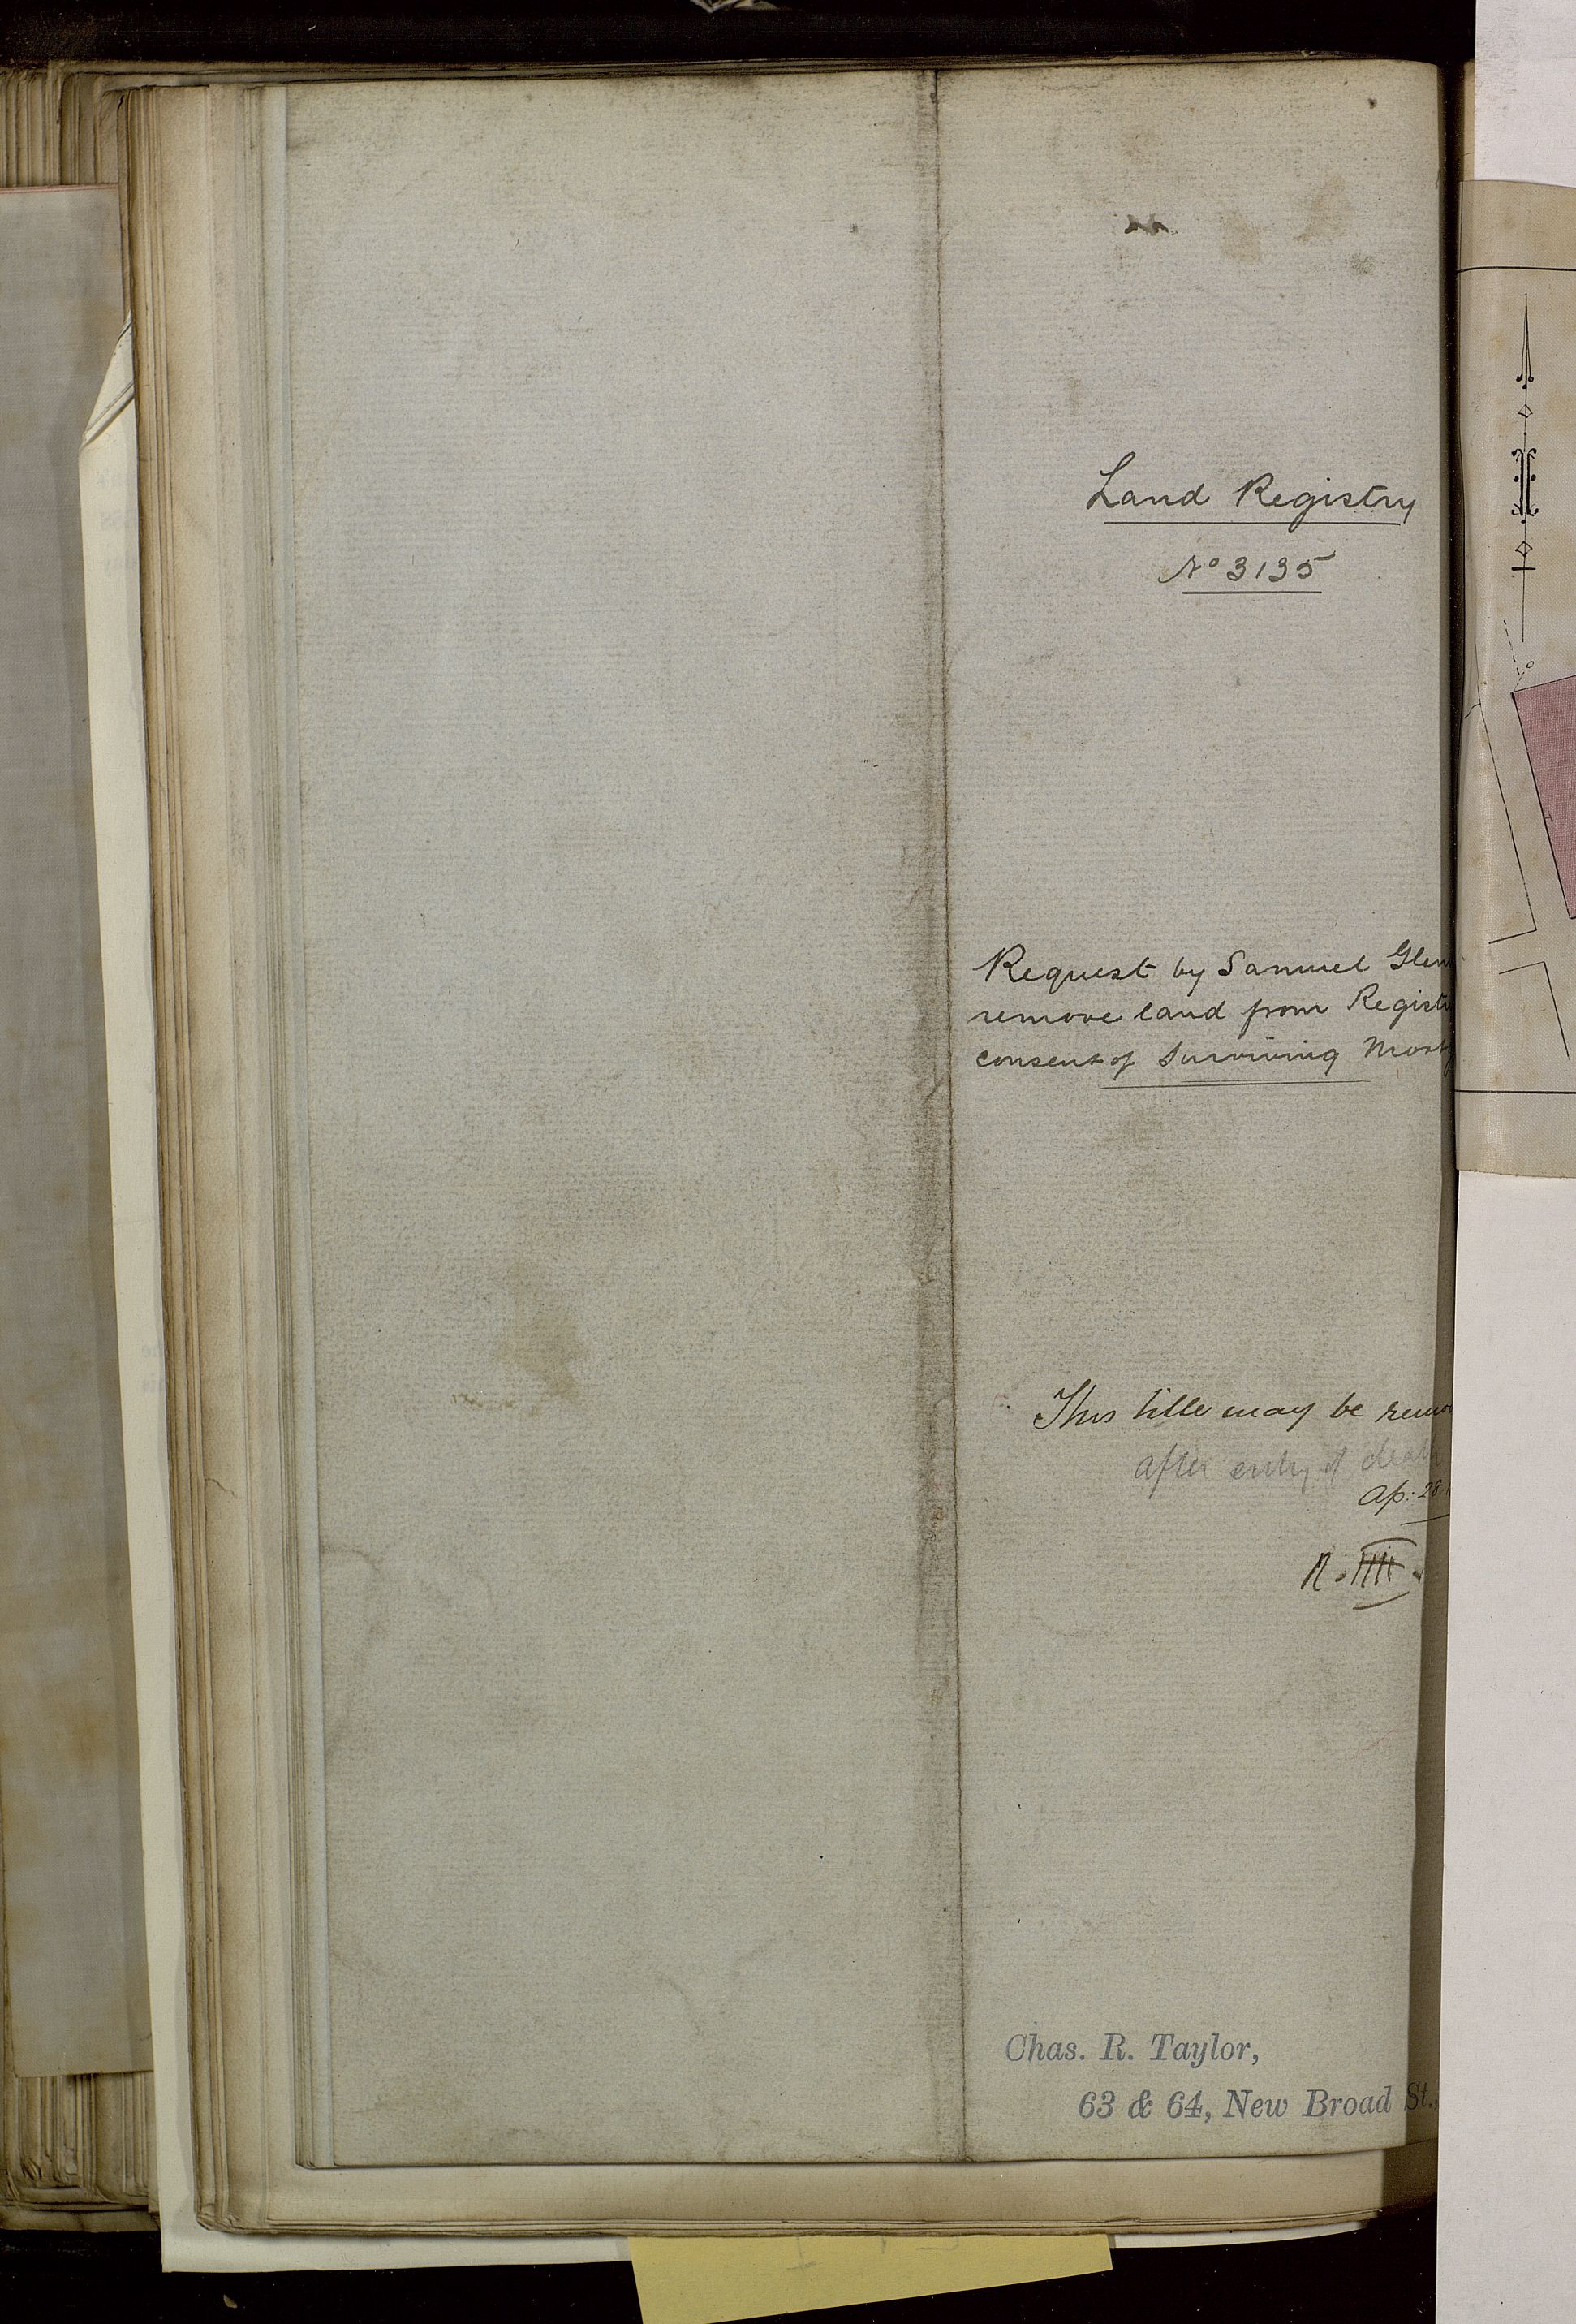 Land Registry
No 3135
Request by Samuel Glen
remove land from Regist
consent of Surviving Mort
This title may be remo
after entry of death
Ap: 28
Chas. R. Taylor,
63 & 64, New Broad St.,